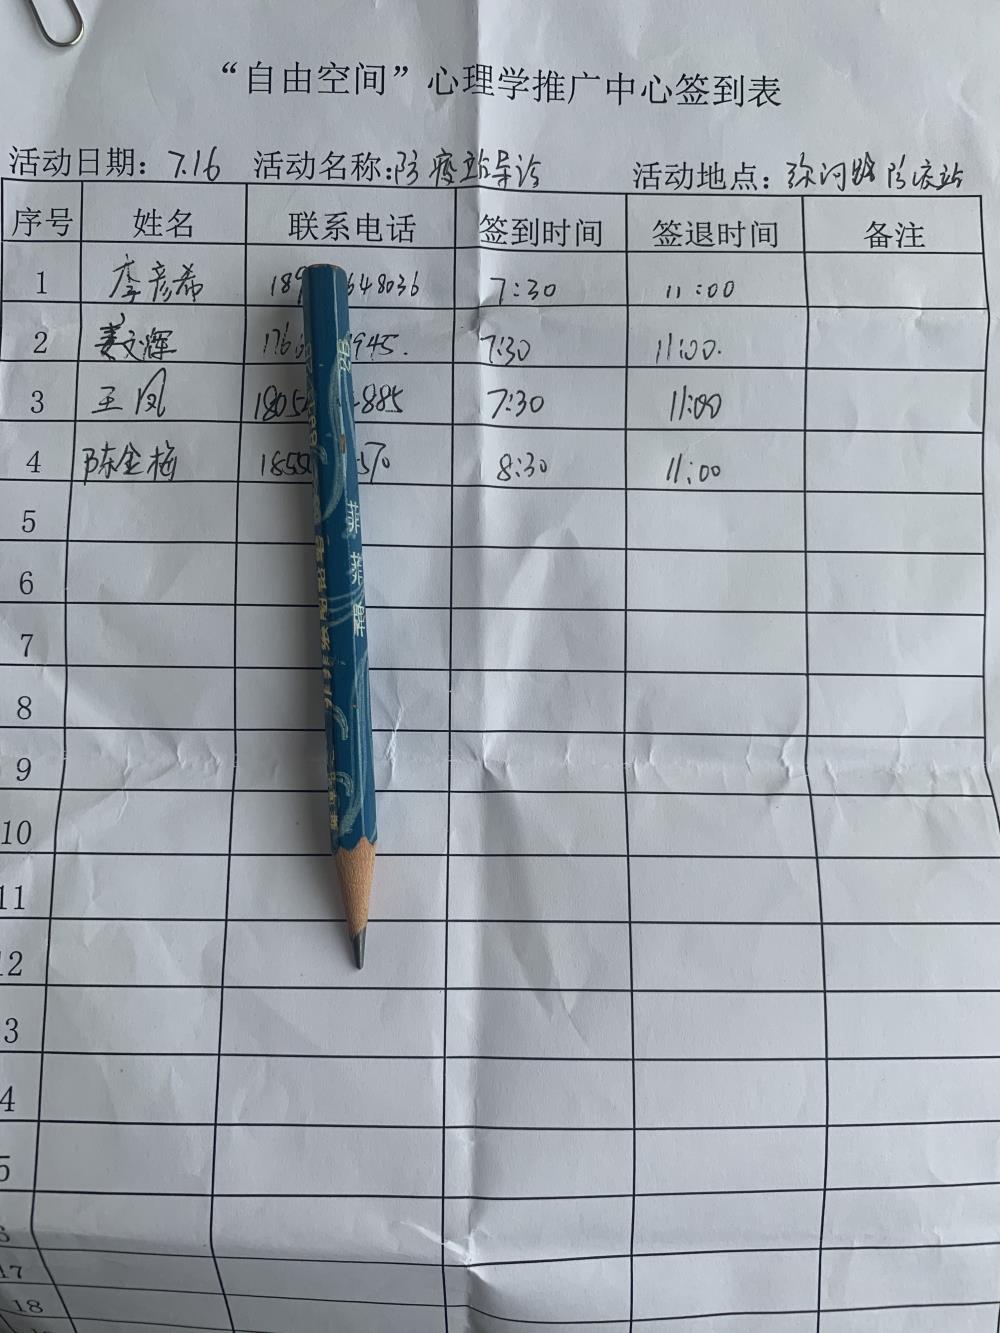 “自由空间”心理学推广中心签到表
活动日期：7.16 活动名称：防疫站导诊 活动地点：弥河路防疫站
序号 姓名 联系电话 签到时间 签退时间 备注
1 廖彦希 189 648036 7:30 11:00
2 姜文辉 176 945. 7:30 11:00.
3 王凤 1805 885 7:30 11:00
4 陈金梅 1855 570 8:30 11:00
5
6
7
8
9
10
11
12
3
4
5
6
17
18
菲菲牌